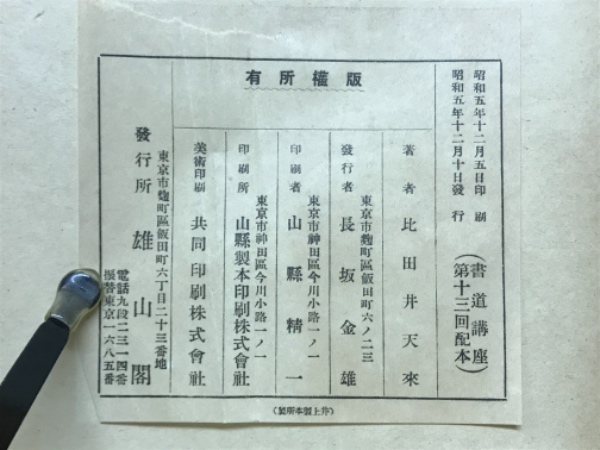 昭和五年十二月五日印刷
昭和五年十二月十日發行
(書道講座 第十三回配本)
版權所有
著者 比田井天來
東京市麴町區飯田町六ノ二三
發行者 長坂金雄
東京市神田區今川小路一ノ一
印刷者 山縣精一
東京市神田區今川小路一ノ一
印刷所 山縣製本印刷株式會社
美術印刷 共同印刷株式會社
東京市麴町區飯田町六丁目二十三番地
發行所 雄山閣
電話九段二三一四番
振替東京一六八五番
(井上製本所製)